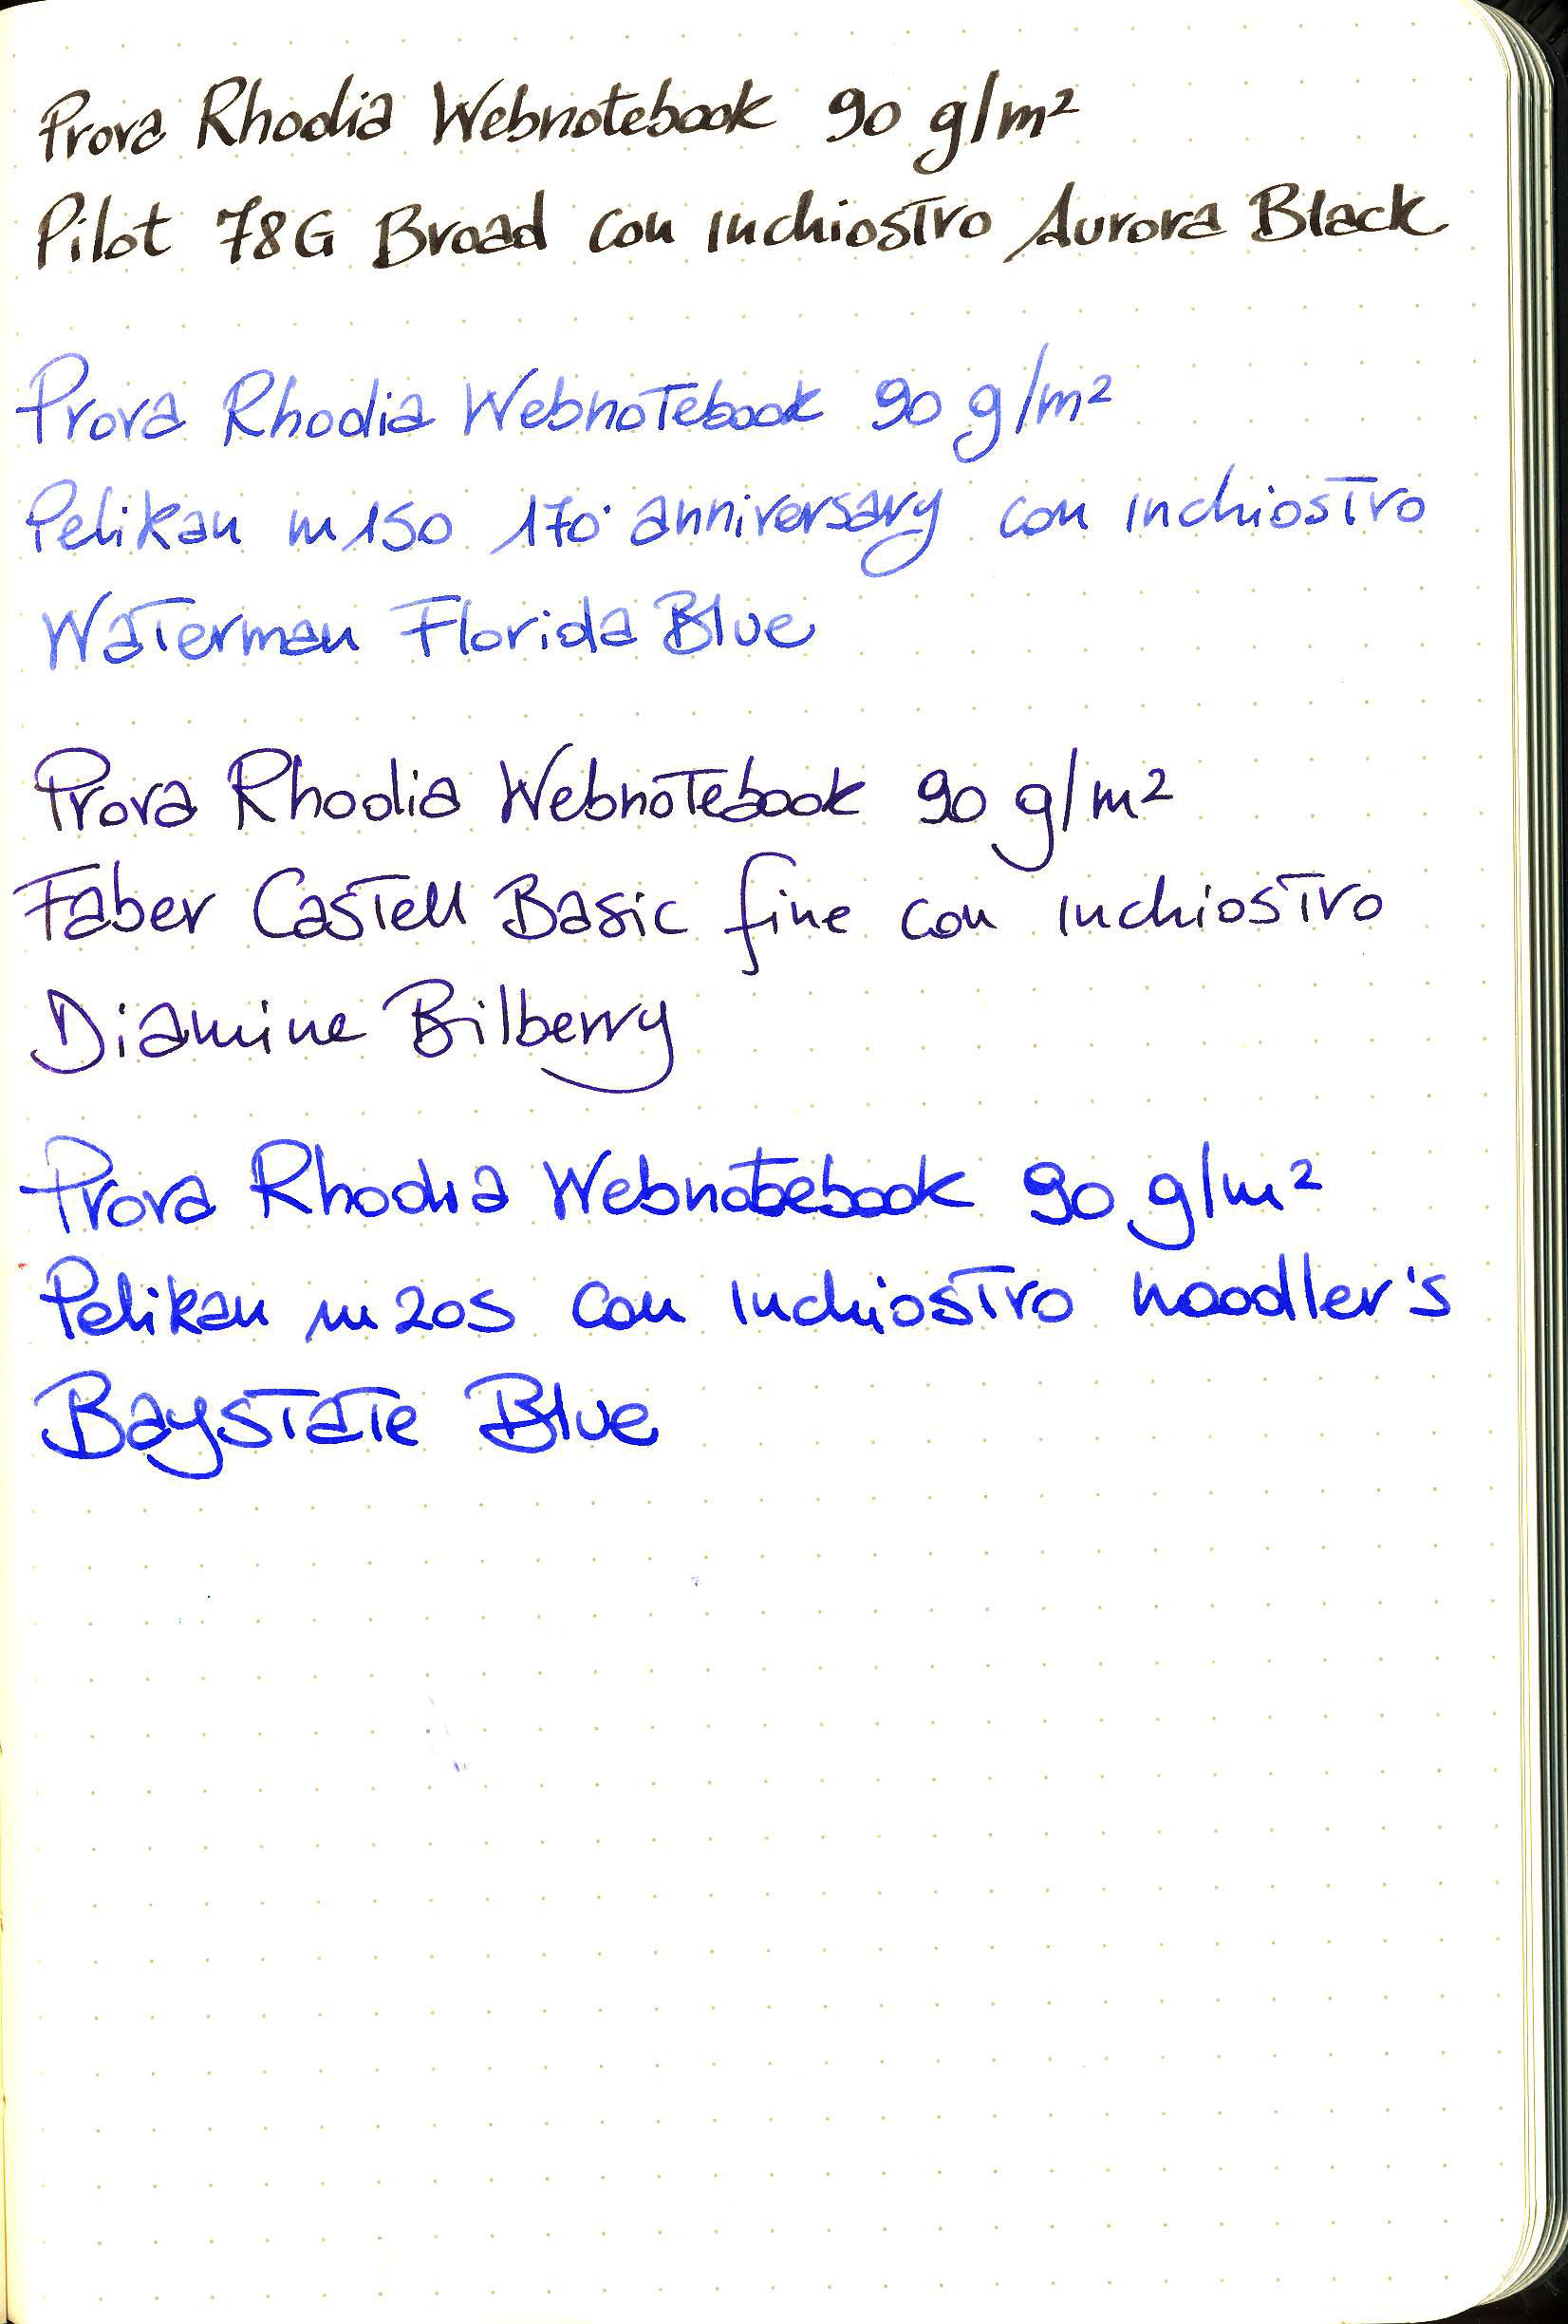 Prova Rhodia Webnotebook 90 g/m²
Pilot 78G Broad con inchiostro Aurora Black
Prova Rhodia Webnotebook 90 g/m²
Pelikan m150 170° anniversary con inchiostro
Waterman Florida Blue
Prova Rhodia Webnotebook 90 g/m²
Faber Castell Basic fine con inchiostro
Diamine Bilberry
Prova Rhodia Webnotebook 90 g/m²
Pelikan m205 con inchiostro noodler's
Baystate Blue